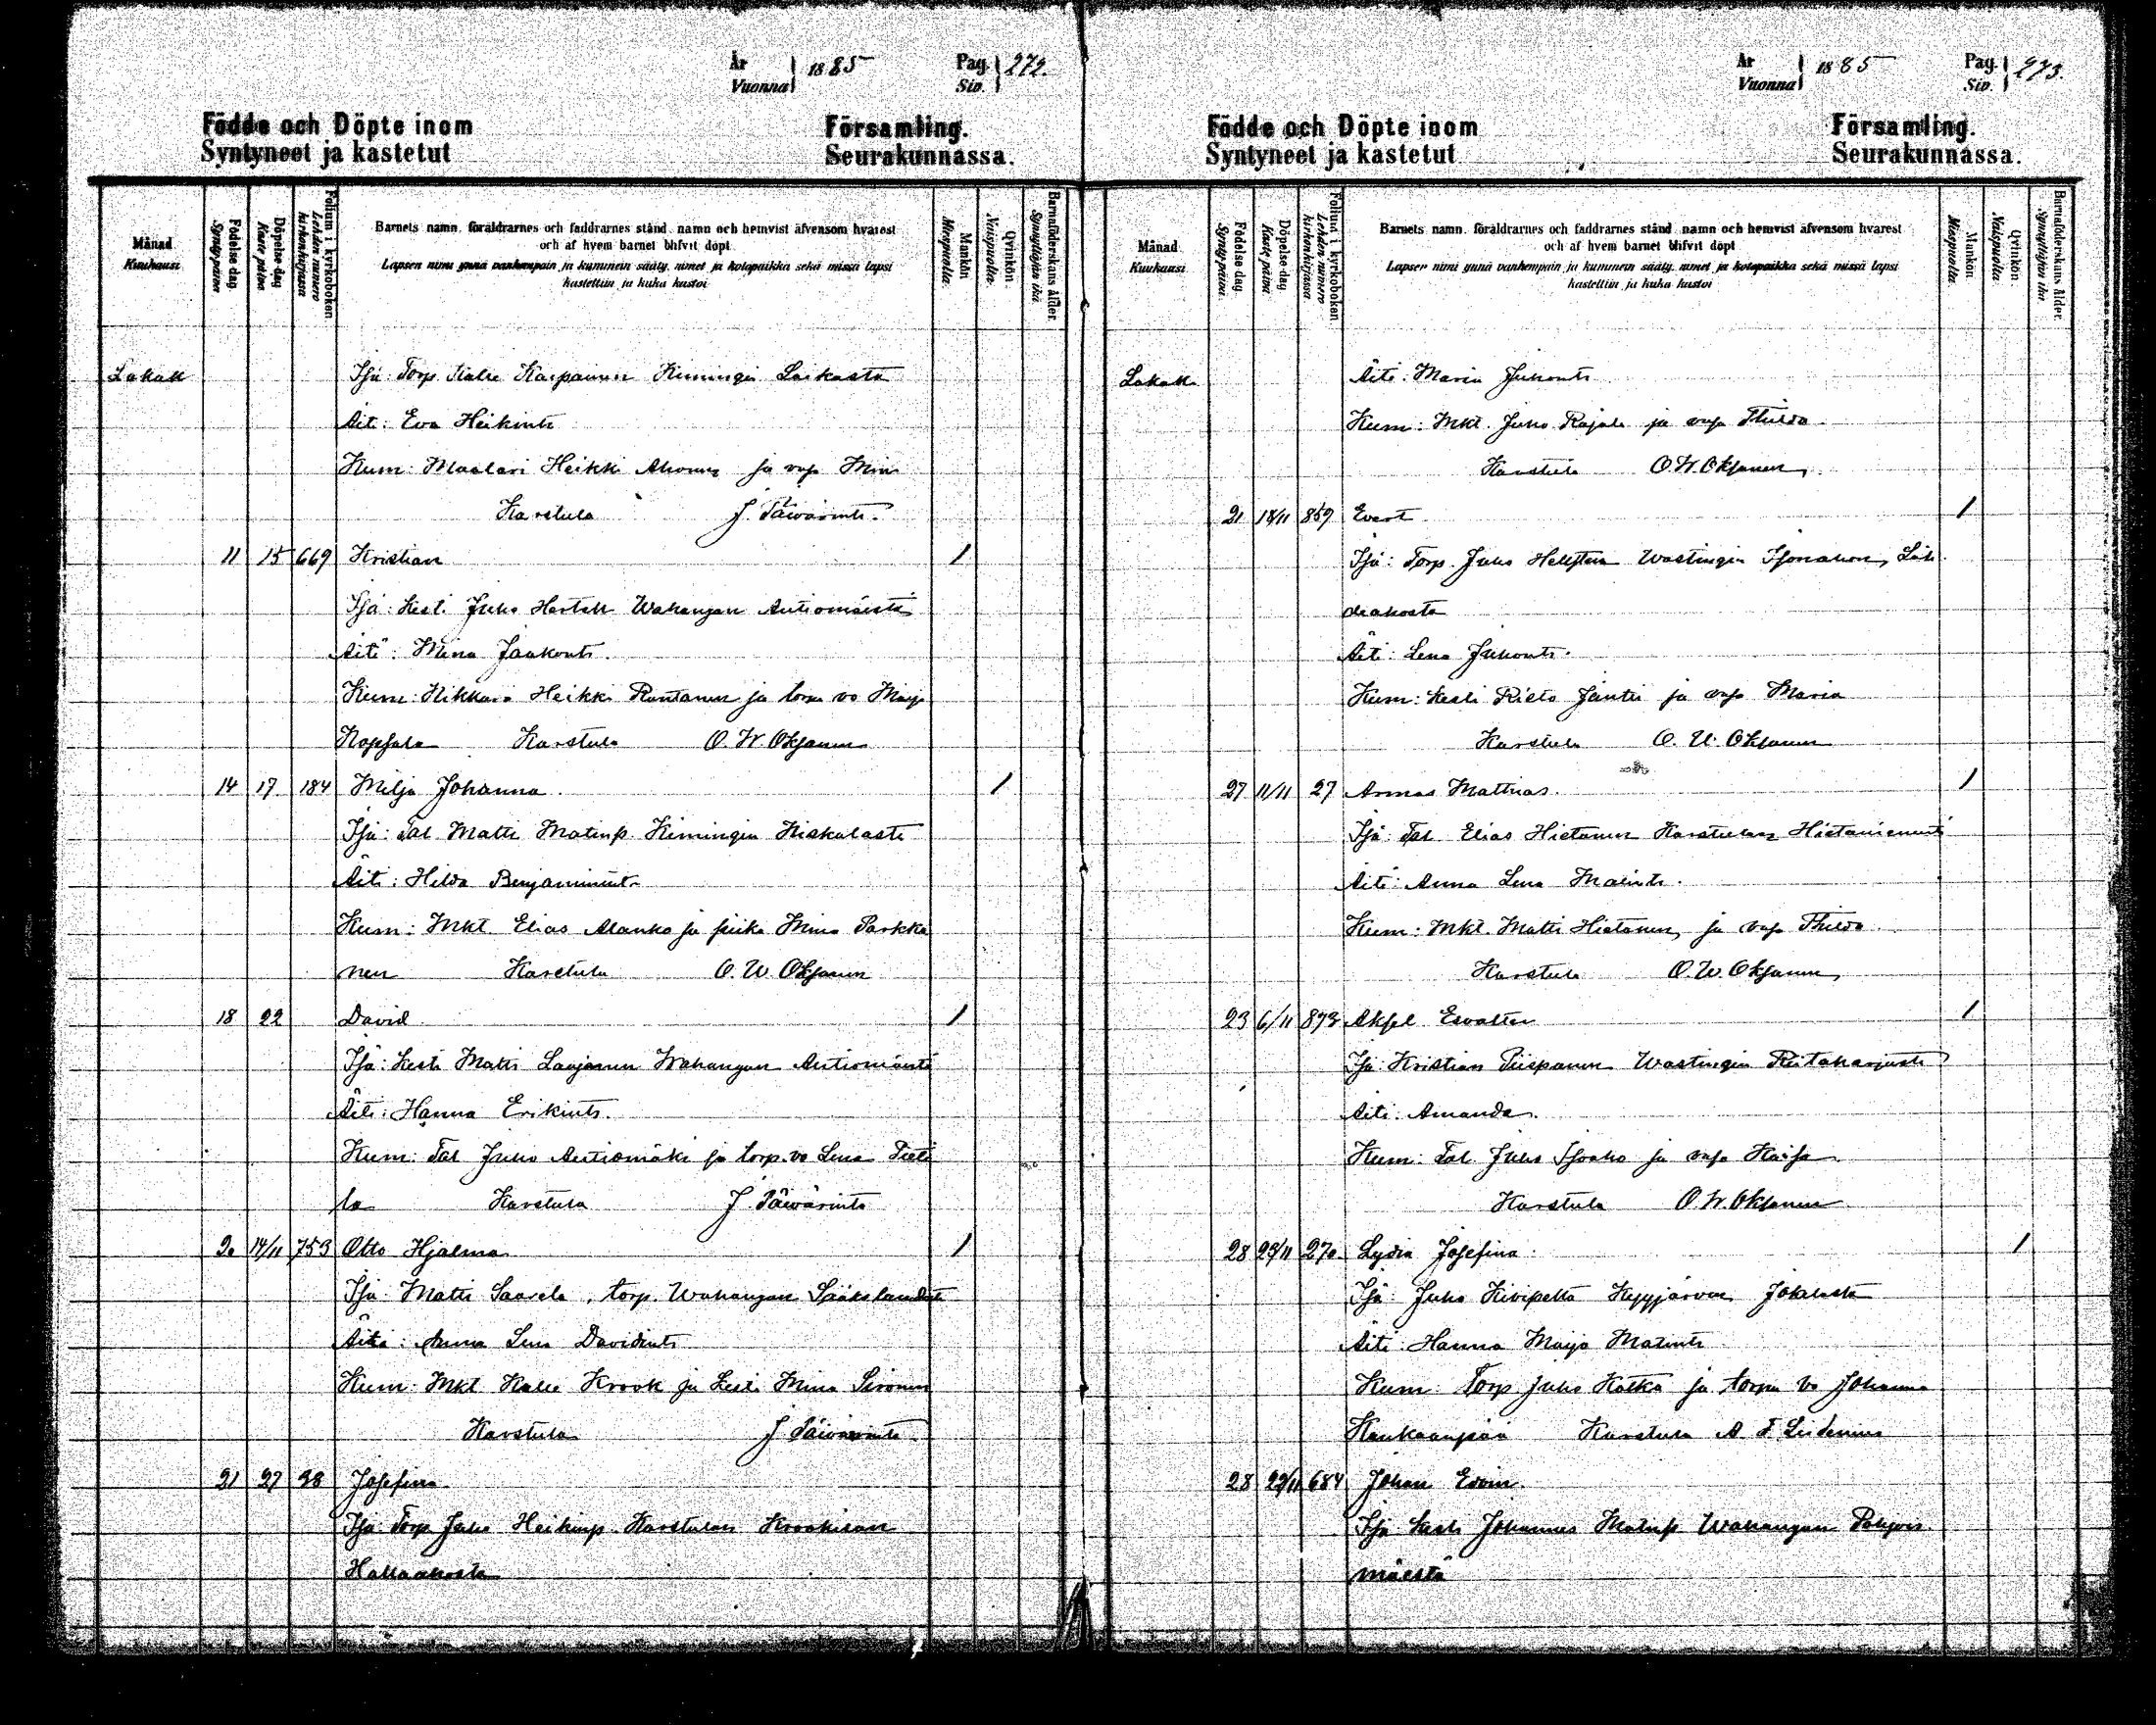 År
Vuonna 1885 Pag.
Siv. 272.
Födde och Döpte inom Församling.
Syntyneet ja kastetut Seurakunnassa.
Månad
Kuukausi
Födelse dag.
Synty-päivä
Döpelse-dag
Kaste päivä
Folium i kyrkoboken
Lehden numero kirkonkirjassa
Barnets namn, föräldrarnes och faddrarnes stånd, namn och hemvist äfvensom hvarest
och af hvem barnet blifvit döpt
Lapsen nimi ynnä vanhempain ja kummein sääty, nimet ja kotopaikka sekä missä lapsi
kastettiin ja kuka kastoi
Mankön
Miespuolta.
Qvinkön
Naispuolta.
Barnaföderskans ålder.
Synnyttäjän ikä.
Lokak Isä: Torp. Kalle Karpainen Kimingin
Äit: Eva Heikint
Kum: Maalari Heikki Ahonen ja vaja Mina
Karstula J. Päivärinta.
11 15 669 Kristian 1
Isä: Kest. Juho Wahangan Autiomäestä
Äiti: Mina Jaakont.
Kum: Nikkari Heikki Rantanen ja torp. vo Maija
Kopsala Karstula O. W. Oksanen
14 17 184 Milja Johanna. 1
Isä: Tal. Matti Matinp. Kimingin Kiskalasta
Äiti: Hilda Benjamint
Kum: Mkt. Elias Alanko ja piika Mina Parkka
nen Karstula O. W. Oksanen
18 22 David 1
Isä: Kesti Matti Laajanen Wahangan Autiomäestä
Äiti: Hanna Erikint.
Kum: Tal Juho Autiomäki ja torp. vo Lena Pieti
la Karstula J. Päivärinta
20 14/11 753 Otto Hjalmar 1
Isä: Matti Saarela, torp. Wahangan Sääkslandesta
Äiti: Anna Lena Davidint
Kum: Mkt. Kalle Krook ja Lesk. Mina Sironen
Karstula J. Päivärinta
21 27 38 Josefina
Isä: Torp. Juho Heikinp. Karstulan
Hallaahosta
År
Vuonna 1885 Pag.
Siv. 273.
Födde och Döpte inom Församling.
Syntyneet ja kastetut Seurakunnassa.
Månad
Kuukausi
Födelse dag.
Synty-päivä.
Döpelse-dag.
Kaste päivä
Folium i kyrkoboken
Lehden numero kirkonkirjassa.
Barnets namn, föräldrarnes och faddrarnes stånd, namn och hemvist äfvensom hvarest
och af hvem barnet blifvit döpt
Lapsen nimi ynnä vanhempain ja kummein sääty, nimet ja kotopaikka sekä missä lapsi
kastettiin ja kuka kastoi
Mankön
Miespuolta.
Qvinkön
Naispuolta.
Barnaföderskans ålder.
Synnyttäjän ikä
Lokak Äiti: Maria Juhont
Kum: Mkt. Juho Rajala ja vaja Thilda
Karstula O. W. Oksanen
21 18/11 859 Evert 1
Isä: Torp. Juho Hellsten Wastingin Isonahon,
ahosta
Äiti: Lena Juhont.
Kum: Kesti Risto Jäntti ja vaja Maria
Karstula O. W. Oksanen
27 11/11 27 Armas Mathias. 1
Isä: Tal. Elias Hietanen Karstulan Hietaniemestä
Äiti: Anna Lena
Kum: Mkt. Matti Hietanen, ja vaja Thilda
Karstula O. W. Oksanen
23 6/11 873 Aksel Evalter 1
Isä: Kristian Piispanen Wastingin Riitaharjusta
Äiti: Amanda.
Kum: Tal. Juho Isoaho ja vaja Kaisa
Karstula O. W. Oksanen
28 23/11 270 Lydia Josefina 1
Isä: Juho Kivipelto Kyyjärven Jokelasta
Äiti: Hanna Maija Matint
Kum: Torp. Juho Kotka ja torp. vo Johanna
Haukaanpää Karstula A. F. Lindenius
28 22/11 684 Johan Edvin.
Isä Kesti Johannes Matinp. Wahangan Pohjois
mäestä